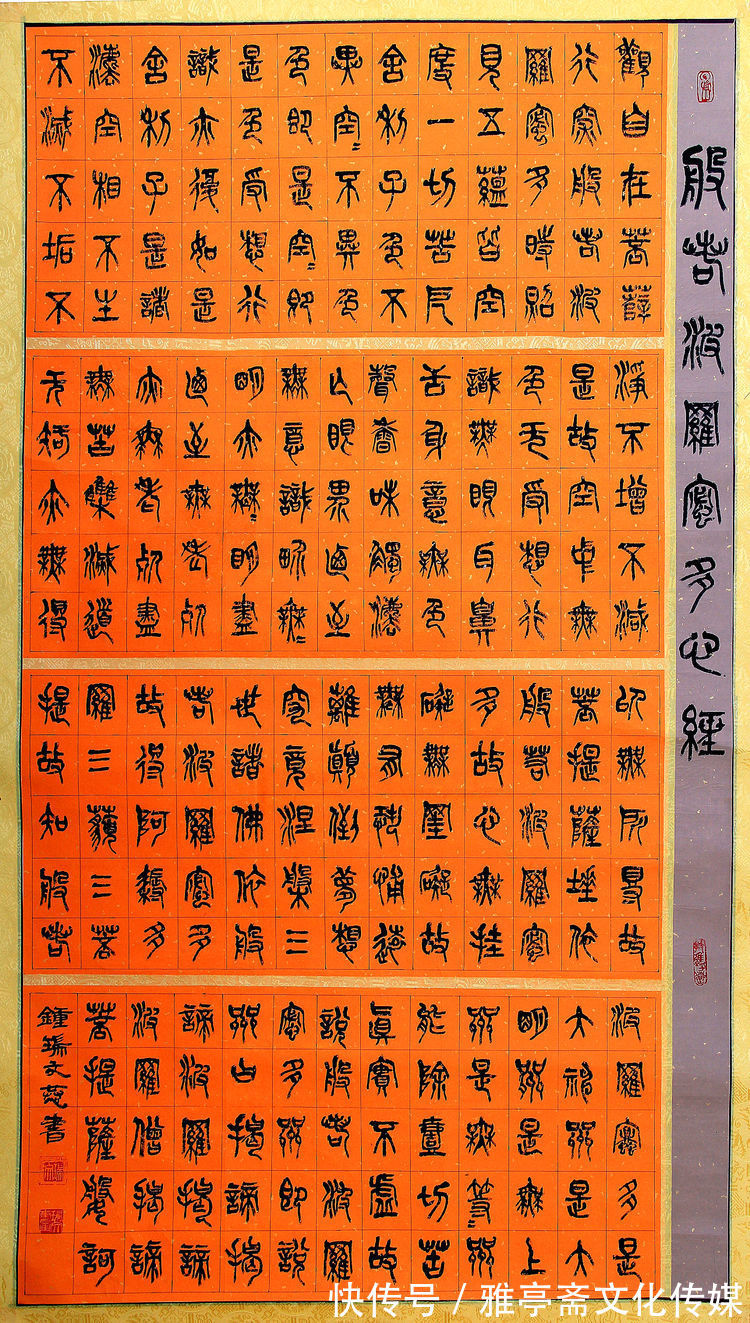 般若波羅蜜多心經
觀自在菩薩
行深般若波
羅蜜多時照
見五蘊皆空
度一切苦厄
舍利子色不
異空〻不異色
色即是空〻即
是色受想行
識亦復如是
舍利子是諸
法空相不生
不滅不垢不
淨不增不減
是故空中無
色无受想行
識無眼耳鼻
舌身意無色
聲香味觸法
亾眼界迺至
無意識界無〻
明亦無〻明盡
迺至無老死
亦無老死盡
無苦集滅道
无智亦無得
以無所得故
菩提薩埵依
般若波羅蜜
多故心無挂
礙無罣礙故
無有恐怖遠
離顛倒夢想
究竟涅槃三
世諸佛依般
若波羅蜜多
故得阿耨多
羅三藐三菩
提故知般若
波羅蜜多是
大神咒是大
明咒是無上
咒是無等〻咒
能除壹切苦
真實不虛故
說般若波羅
蜜多咒即說
咒曰揭諦揭
諦波羅揭諦
波羅僧揭諦
菩提薩婆訶
鍾瑞文慈書
快传号 / 雅亭斋文化传媒